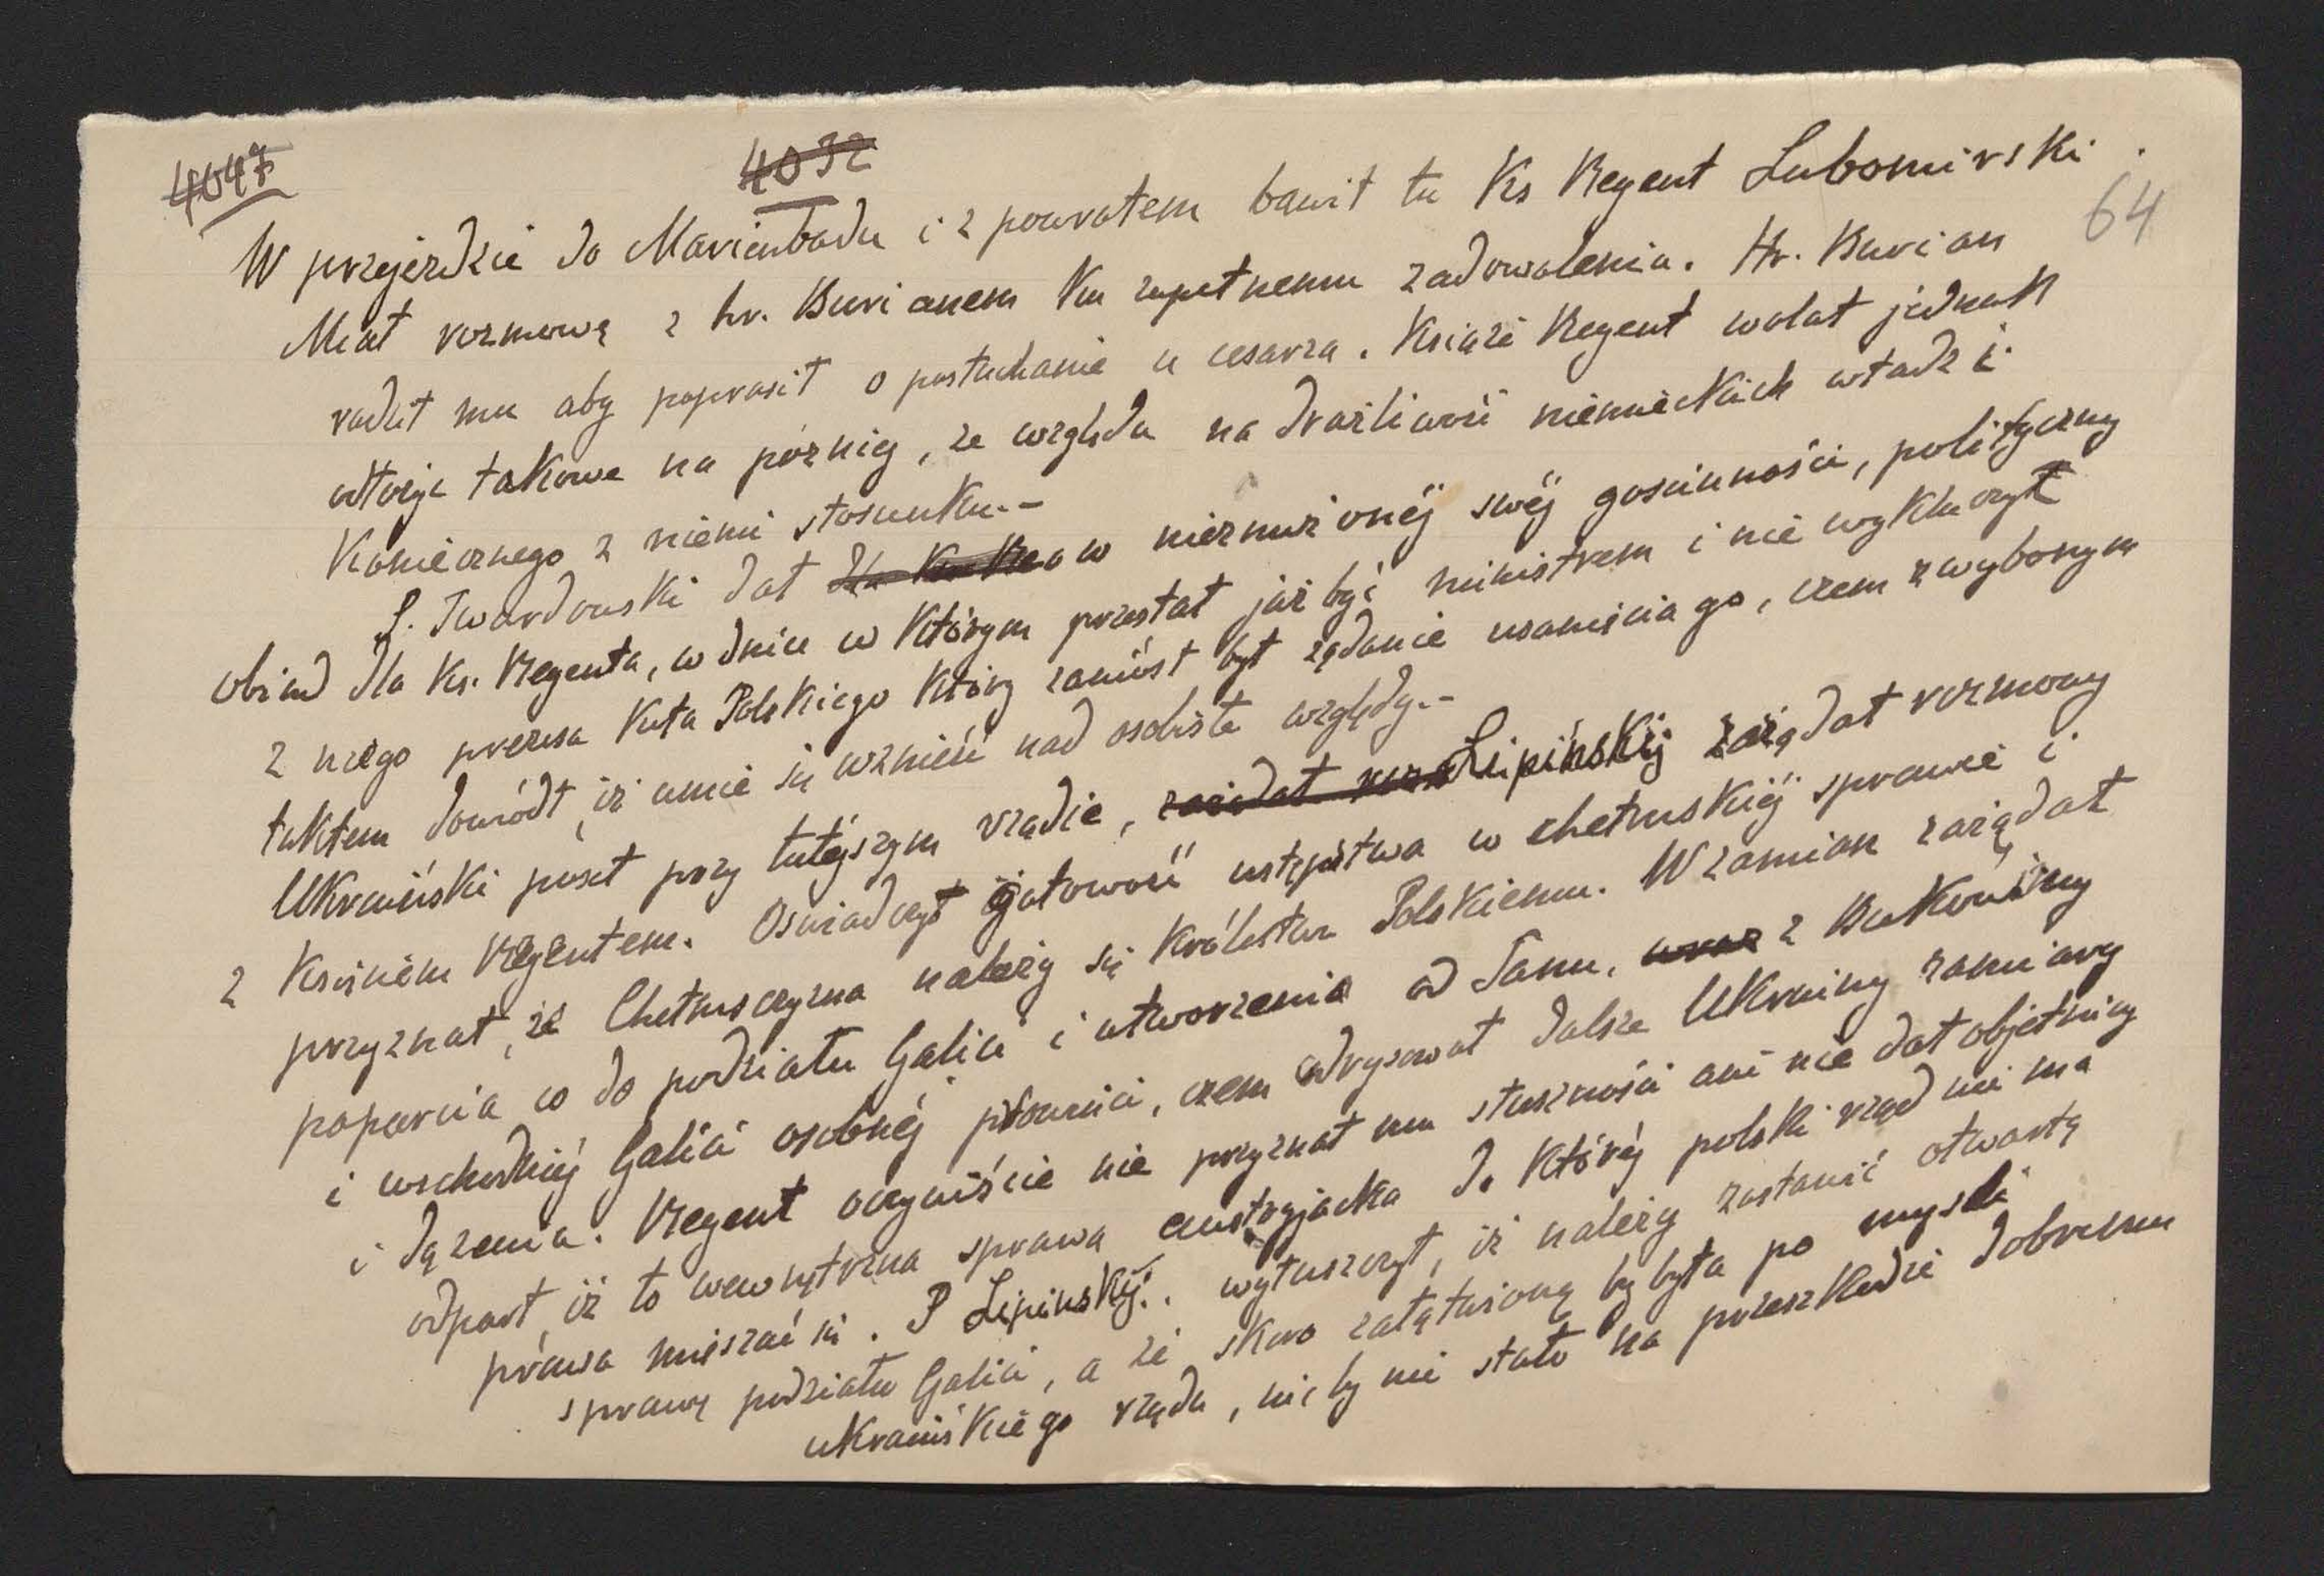 4047
4032
64
W przejeździe do Marienbadu i z powrotem bawił tu Ks Regent Lubomirski.
Miał rozmowę z hr. Burianem ku zupełnemu zadowoleniu. Hr. Burian
radził mu aby poprosił o posłuchanie u cesarza. Książe Regent wolał jednak
odłożyć takowe na później, ze względu na drażliwość niemieckich władz i
koniecznego z niemi stosunku.-
J. Twardowski dał w niezmużonéj swéj gościnności, polityczny
obiad dla Ks. Regenta, w dniu w którym przestał już być ministrem i nie wykluczył
z niego prezesa Koła Polskiego który zaniósł był żądanie usunięcia go, czem z wybornym
taktem dowiódł, iż umie się wznieść nad osobiste względy.-
Ukraiński poseł przy tutéjszym rządzie, Lipińskij zażądał rozmowy
z Księciem Regentem. Oświadczył gotowość ustępstwa w chełmskiéj sprawie i
przyznał, że Chełmszczyzna należy się Królestwu Polskiemu. W zamian zażądał
poparcia co do podziału Galicii i utworzenia od Sanu, z Bukowiny
i wschodniéj Galicii osobnéj prowincii, czem odrysował dalsze Ukrainy zamiary
i dążenia. Regent oczywiście nie przyznał mu słuszności ani nie dał objetnicy
odparł, iż to wewnętrzna sprawa austryjacka do któréj polski rząd nie ma
prawa mieszać się. P Lipinskij. wyłuszczył, iż należy zostawić otwartą
sprawę podziału Galicii, a że skoro załatwioną by była po myśli
ukraińskiego rządu, nic by nie stało na przeszkodzie dobremu